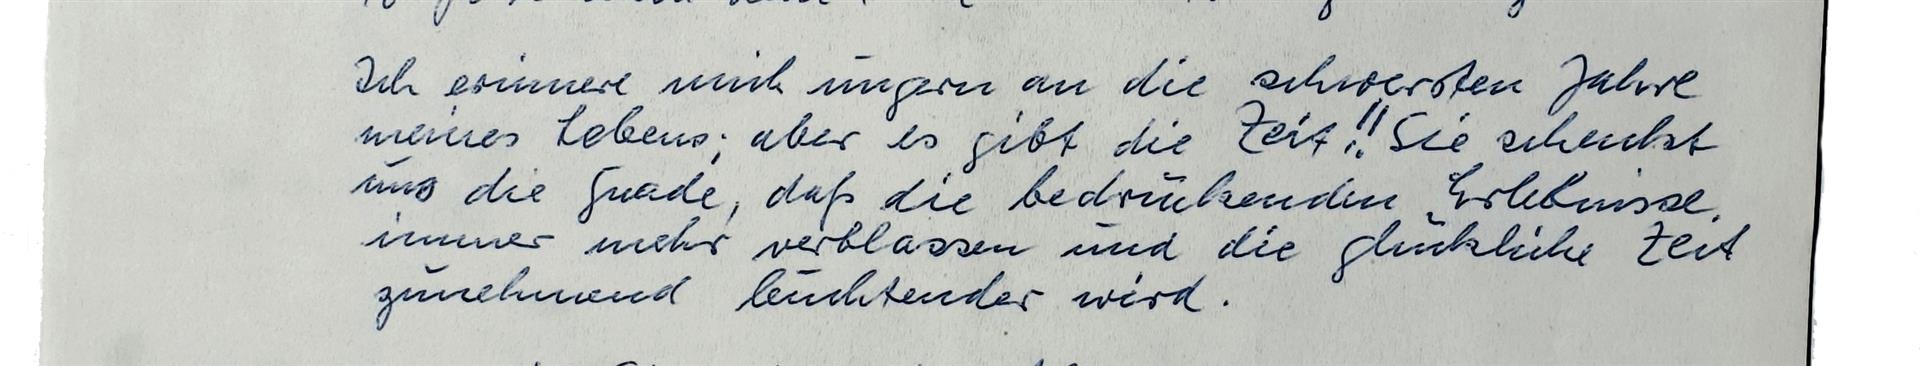 Ich erinnere mich ungern an die schwersten Jahre
meines Lebens; aber es gibt die Zeit!! Sie schenkt
uns die Gnade, daß die bedrückenden Erlebnisse
immer mehr verblassen und die glückliche Zeit
zunehmend leuchtender wird.